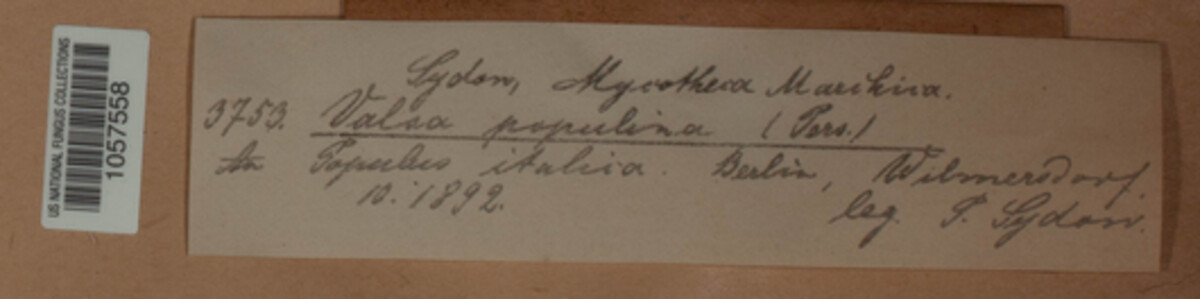 US NATIONAL FUNGUS COLLECTIONS
1057558
Sydow, Mycotheca Marchica.
3753. Valsa populina (Pers.)
An Populus italica. Berlin, Wilmersdorf.
10. 1892. leg. P. Sydow.